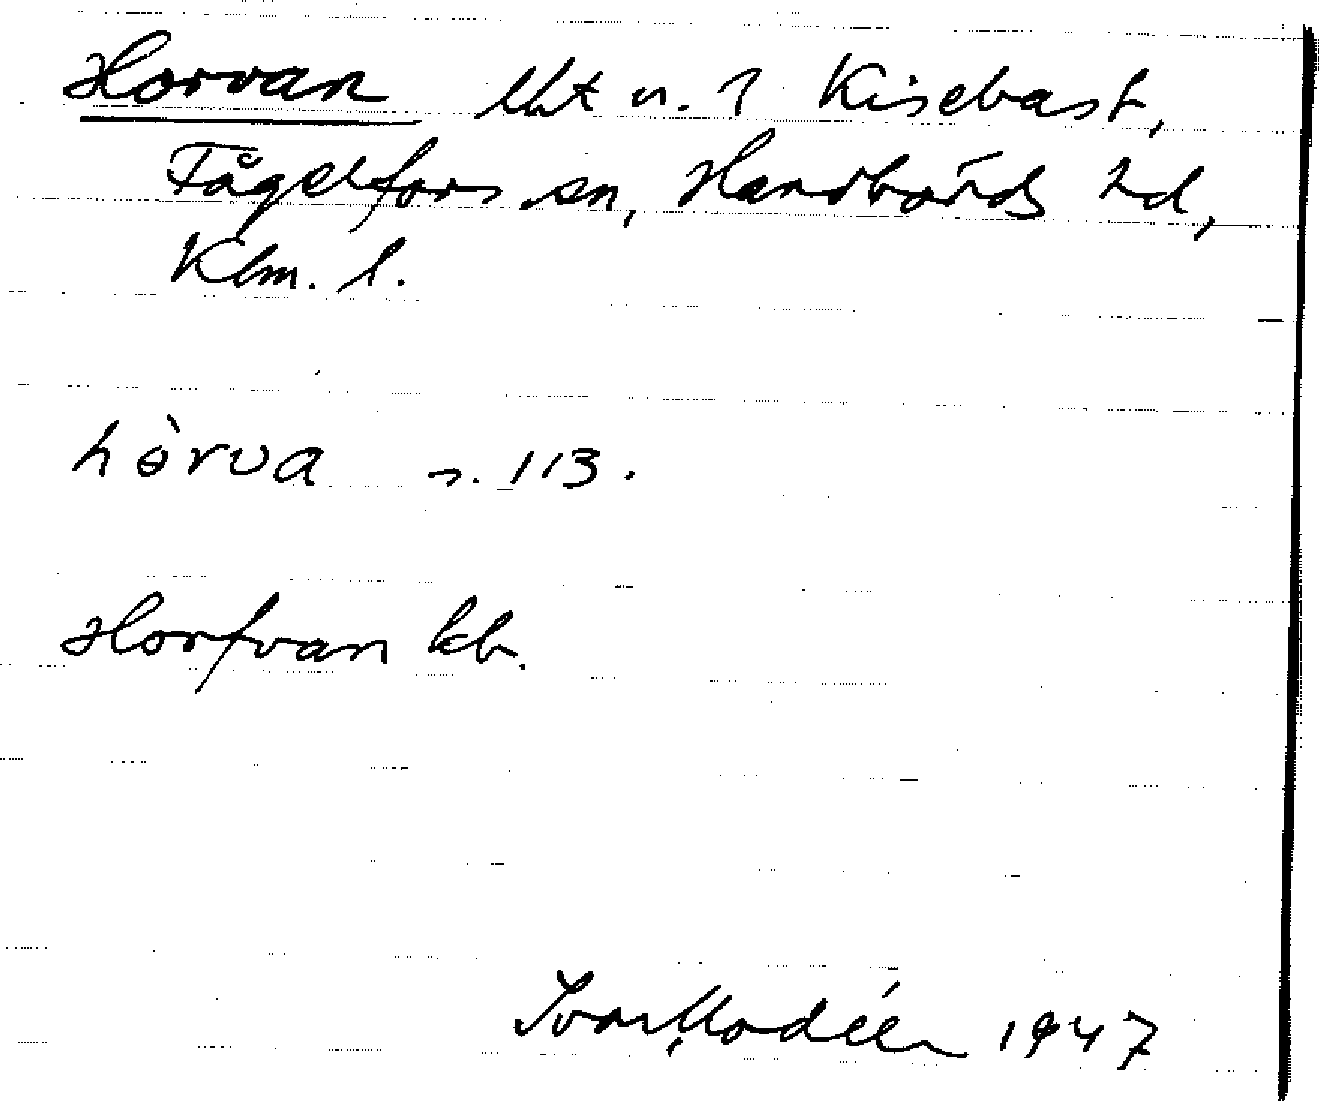 Horvan lht u. 1 Kisebast,
Fågelfors sn, Handbörds hd,
Klm. l.
hòrva s. 113.
Horfvan kb.
Ivar Modéer 1947